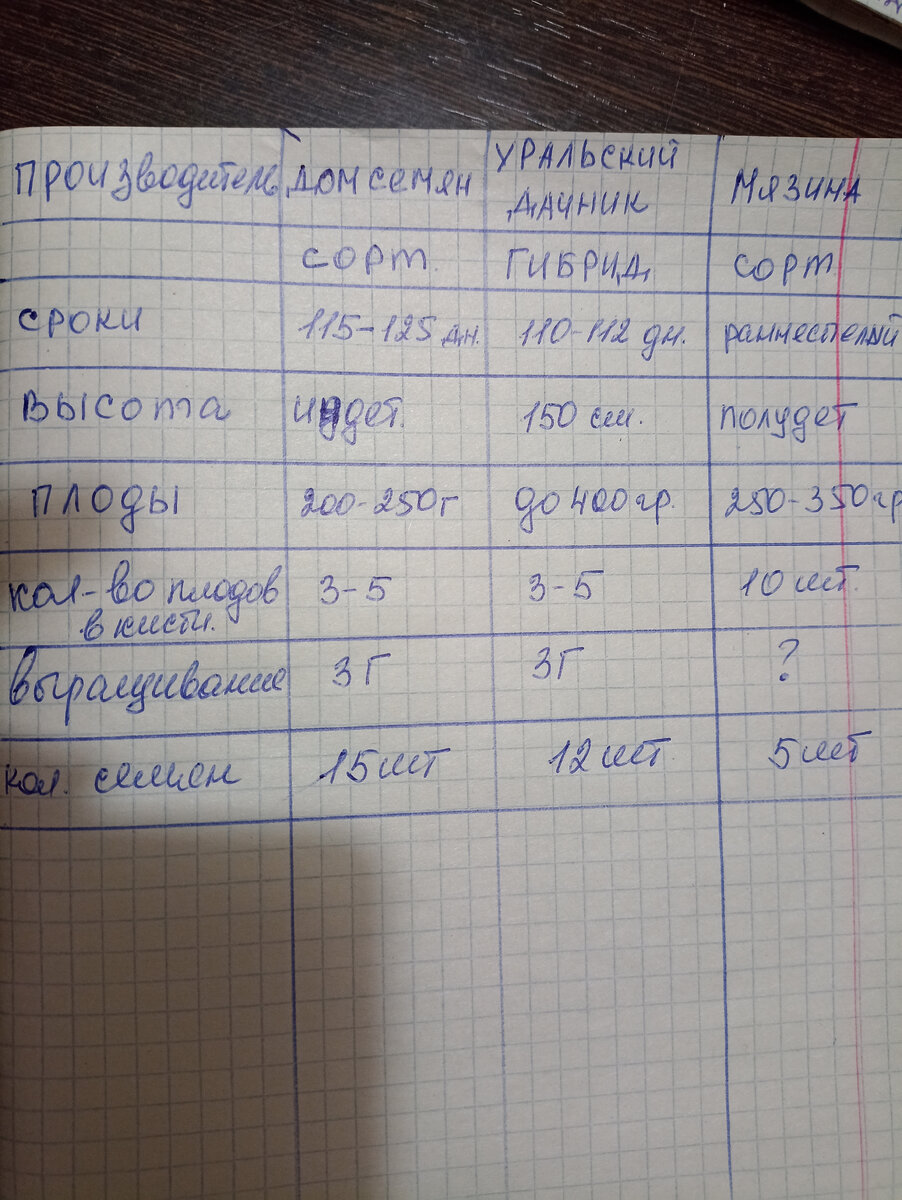 ПРОИЗВОДИТЕЛЬ ДОМ СЕМЯН УРАЛЬСКИЙ ДАЧНИК МЯЗИНА
СОРТ. ГИБРИД СОРТ
СРОКИ 115-125 дн. 110-112 дн. раннеспелый
ВЫСОТА индет. 150 см. полудет
ПЛОДЫ 200-250г до 400гр. 250-350гр
кол-во плодов в кисти. 3-5 3-5 10 шт.
Выращивание ЗГ ЗГ ?
кол. семен 15 шт 12 шт. 5 шт